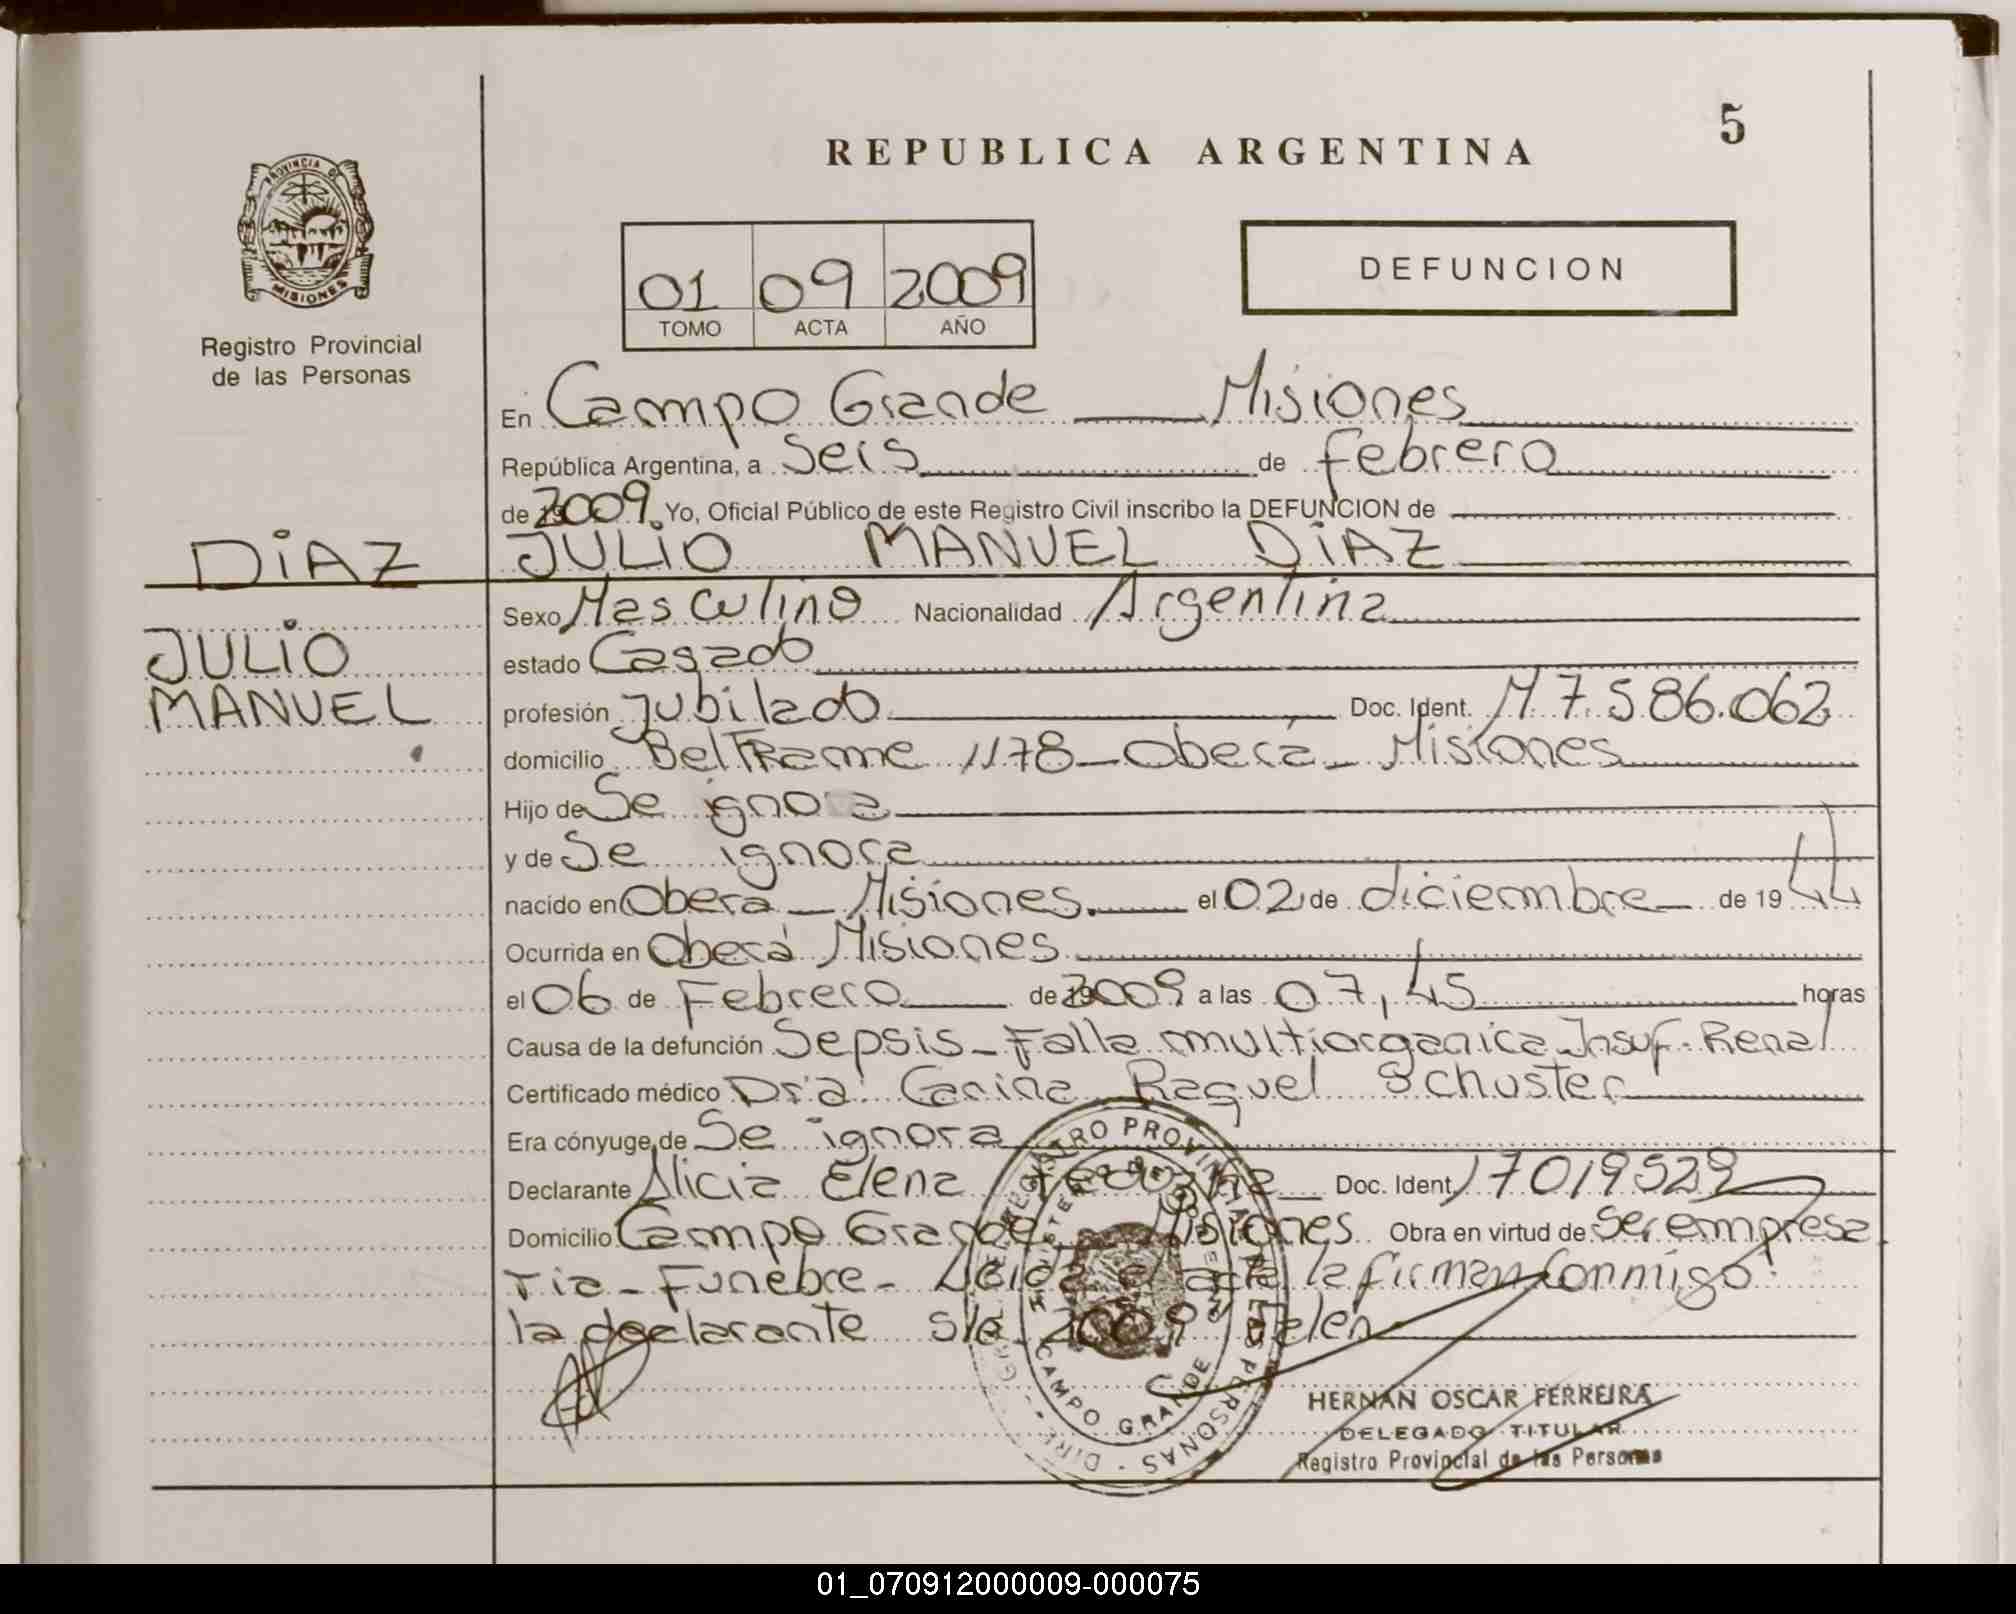 5
REPUBLICA ARGENTINA
PROVINCIA DE
MISIONES
DEFUNCION
01 09 2009
TOMO ACTA AÑO
Registro Provincial
de las Personas
En Campo Grande Misiones
República Argentina, a Seis de febrero
de 2009. Yo, Oficial Público de este Registro Civil inscribo la DEFUNCION de
DiAZ JULiO MANUEL DiAZ
Sexo Masculino Nacionalidad Argentina
JULiO
estado Casado
MANUEL
profesión Jubilado Doc. Ident. M 7.586.062
domicilio Beltrame 1178 - Oberá - Misiones
Hijo de Se ignora
y de Se ignora
nacido en Obera - Misiones. el 02 de diciembre de 1944
Ocurrida en Oberá Misiones
el 06 de Febrero de 2009 a las 07,45 horas
Causa de la defunción Sepsis - Falla multiorganica Insuf. Renal
Certificado médico Dra. Carina Raquel Schuster
Era cónyuge de Se ignora
Declarante Alicia Elena Doc. Ident. 17019529
Domicilio Campo Grande Misiones Obra en virtud de Ser empresa
ria - Funebre - Leida el acta la firman Conmigo
la declarante s/r 2009 Valen
REGISTRO PROVINCIAL DE LAS PERSONAS
MINISTERIO DE GOBIERNO
CAMPO GRANDE
HERNAN OSCAR FERREIRA
DELEGADO TITULAR
Registro Provincial de las Personas
01_070912000009-000075